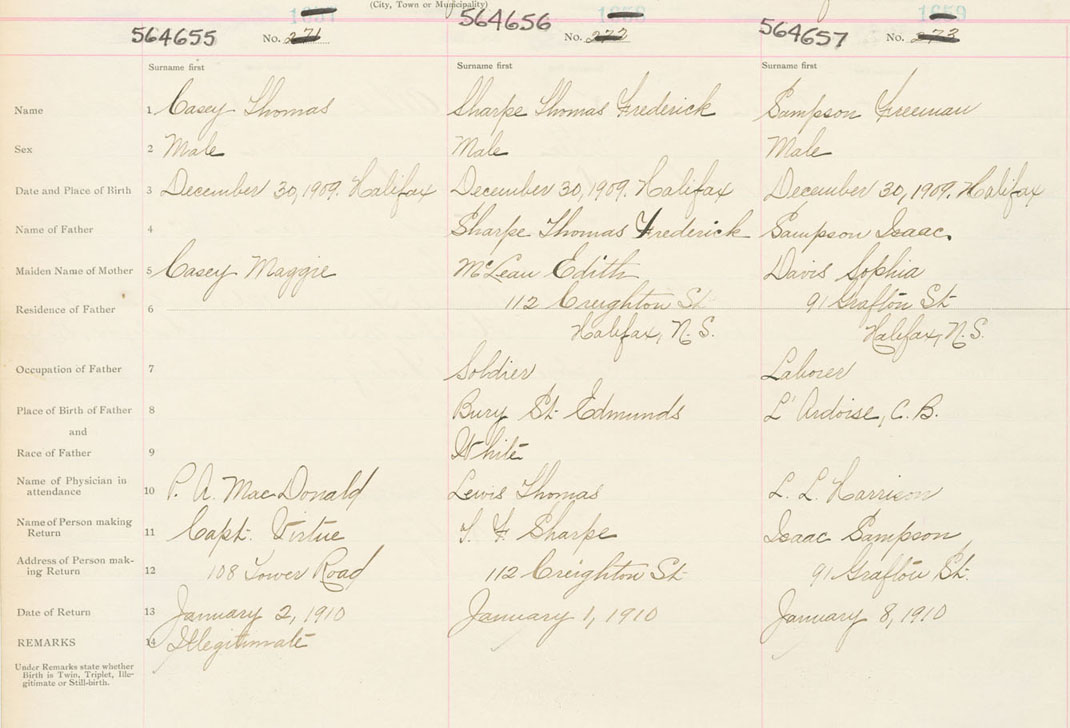 (City, Town or Municipality)
564655 No. 271
564656 No. 272
564657 No. 273
Surname first Surname first Surname first
Name 1 Casey Thomas Sharpe Thomas Frederick Sampson Freeman
Sex 2 Male Male Male
Date and Place of Birth 3 December 30, 1909. Halifax December 30, 1909. Halifax December 30, 1909. Halifax
Name of Father 4 Sharpe Thomas Frederick Sampson Isaac.
Maiden Name of Mother 5 Casey Maggie McLean Edith Davis Sophia
Residence of Father 6 112 Creighton St. 91 Grafton St.
Halifax, N.S. Halifax, N.S.
Occupation of Father 7 Soldier Laborer
Place of Birth of Father 8 Bury St. Edmunds L'Ardoise, C.B.
and
Race of Father 9 White
Name of Physician in attendance 10 P. A. MacDonald Lewis Thomas L. L. Harrison
Name of Person making Return 11 Capt. Virtue T. F. Sharpe Isaac Sampson
Address of Person mak-
ing Return 12 108 Tower Road 112 Creighton St. 91 Grafton St.
Date of Return 13 January 2, 1910 January 1, 1910 January 8, 1910
REMARKS 14 Illegitimate
Under Remarks state whether
Birth is Twin, Triplet, Ille-
gitimate or Still-birth.